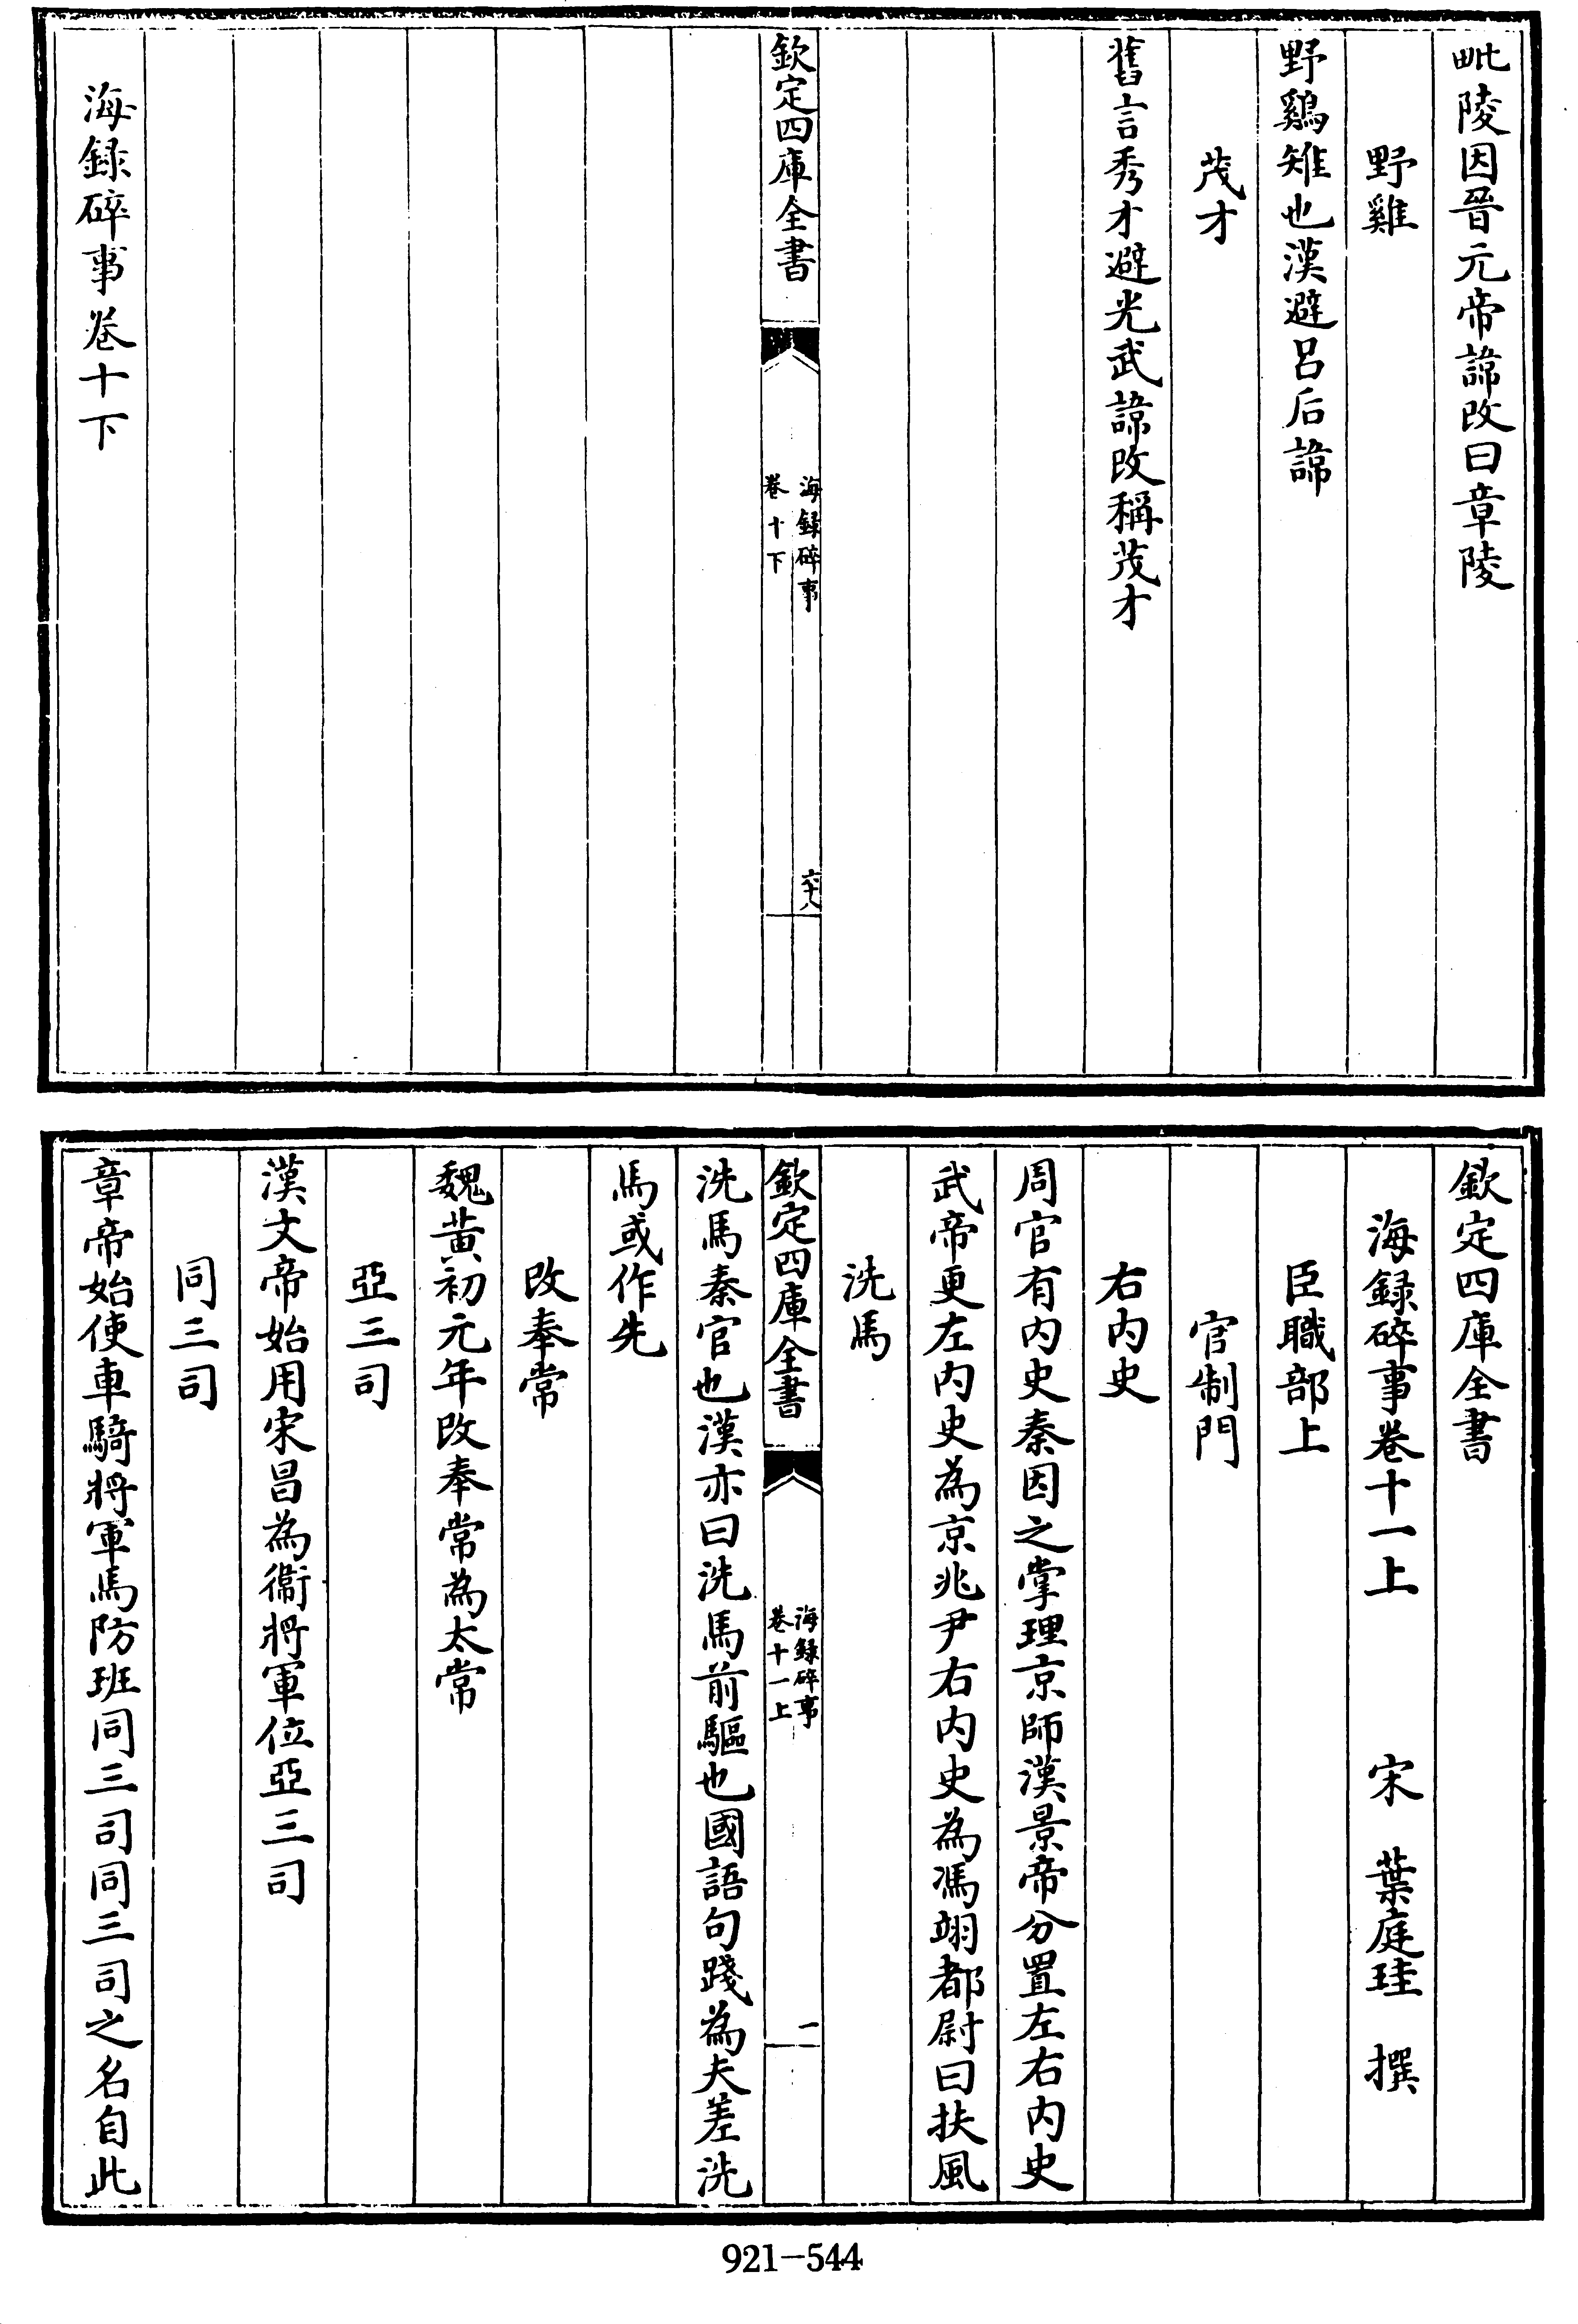 毗陵因晉元帝諱改曰章陵
野雞
野鷄雉也漢避呂后諱
茂才
舊言秀才避光武諱改稱茂才
欽定四庫全書
海録碎事
卷十下
六十八
海録碎事卷十下
欽定四庫全書
海録碎事卷十一上 宋 葉庭珪 撰
臣職部上
官制門
右内史
周官有内史秦因之掌理京師漢景帝分置左右内史
武帝更左内史為京兆尹右内史為馮翊都尉曰扶風
洗馬
欽定四庫全書
海録碎事
卷十一上
一
洗馬秦官也漢亦曰洗馬前驅也國語句踐為夫差洗
馬或作先
改奉常
魏黄初元年改奉常為太常
亞三司
漢文帝始用宋昌為衞將軍位亞三司
同三司
章帝始使車騎將軍馬防班同三司同三司之名自此
921-544